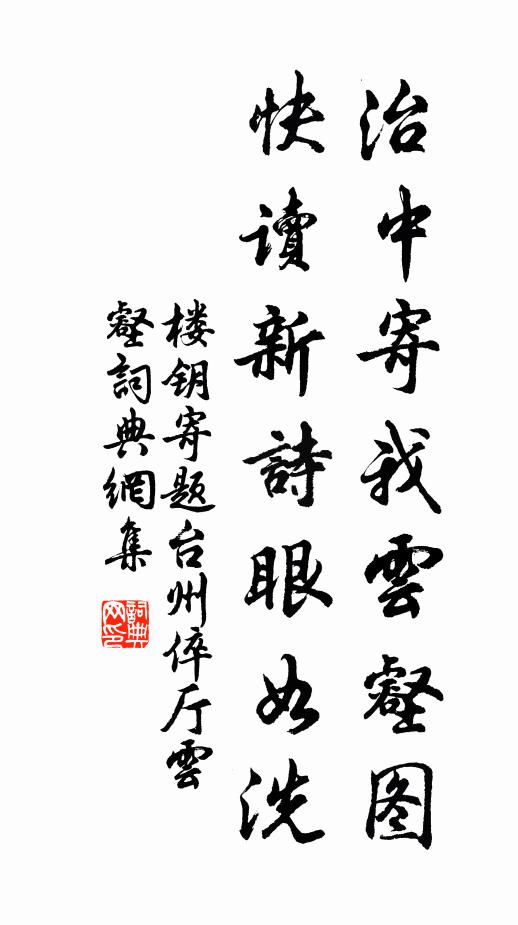 治中寄我雲壑图
快读新詩眼如洗
楼钥寄题台州倅厅雲
壑詞典網集
詞典网印